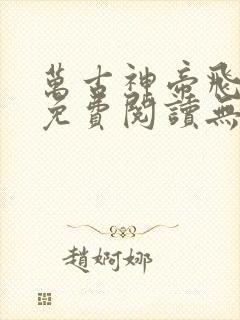 萬古神帝飛
免費閱讀無
趙婀娜